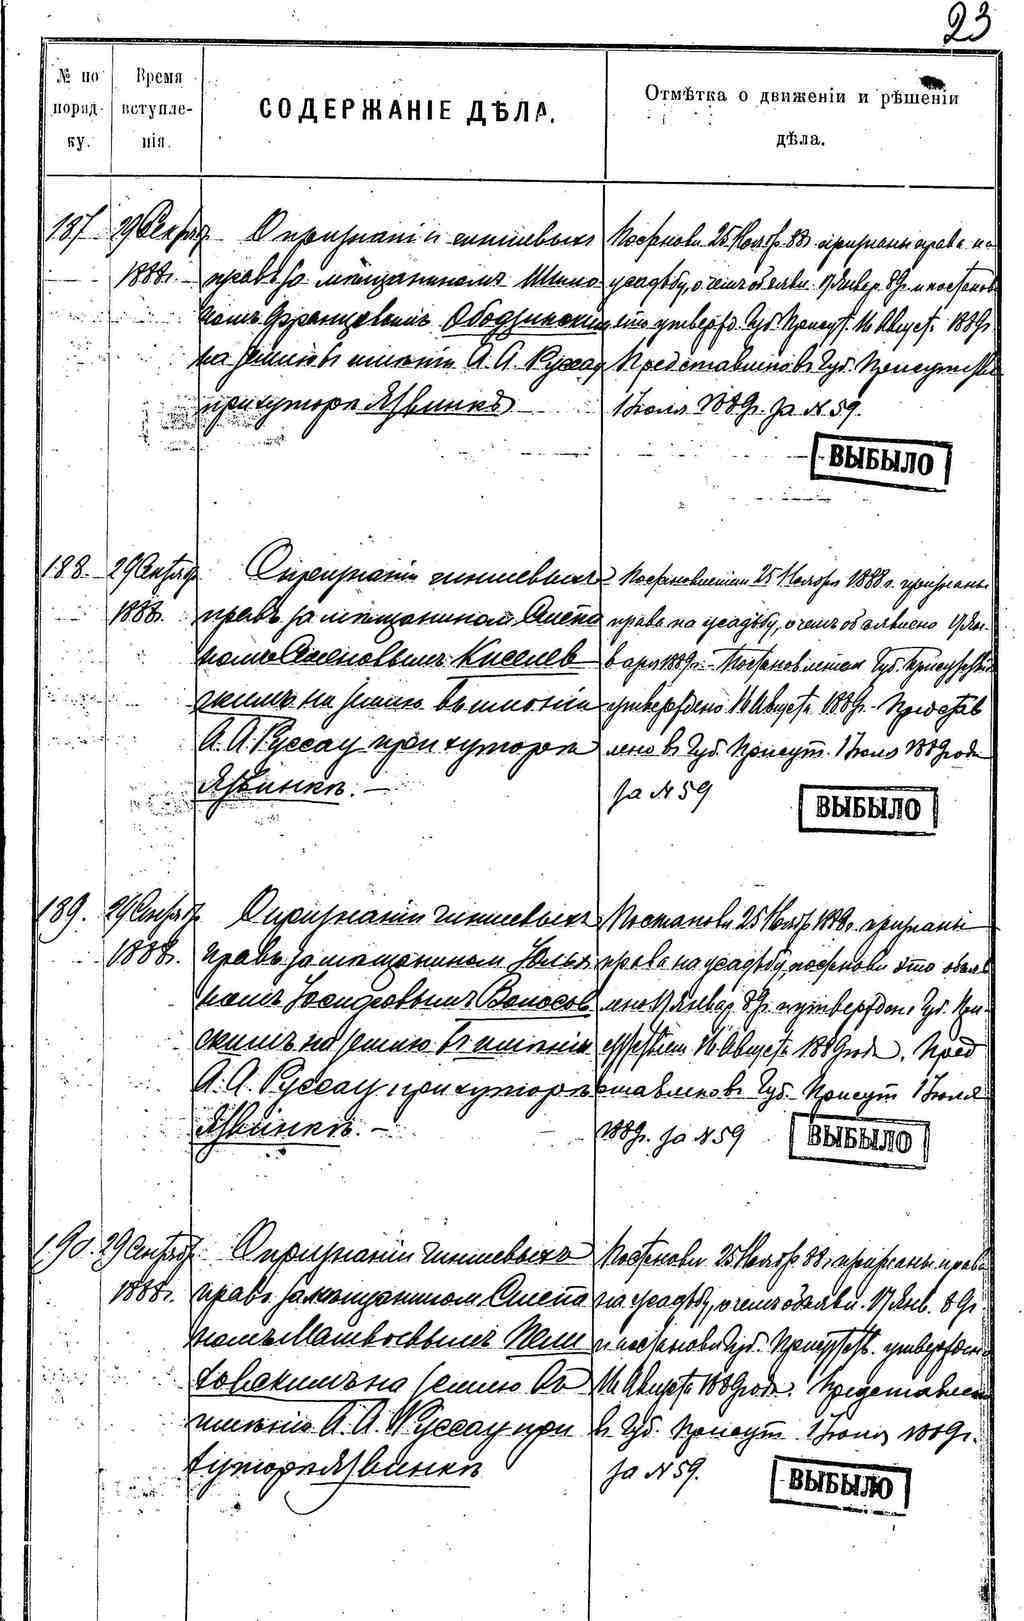 23
№ по поряд- ку.
Время вступле- нія.
СОДЕРЖАНІЕ ДѢЛА.
Отмѣтка о движеніи и рѣшеніи
дѣла.
187
29 Сентяб.
1888г.
О признаніи чиншевыхъ
правъ за мѣщаниномъ
Францовымъ Ободзинским
на землю въ имѣніи А. А. Руссау
при хуторѣ Язвинкѣ
Постановл. 25 Ноябр. 88г. признаны права на
усадьбу, о чемъ объявл. 17 Январ. 89г. и постанов
утвержд. Губ. Присут. 16 Август. 1889г.
Представлено въ Губ. Присутствіе
1 Іюля 1889г. за № 59.
ВЫБЫЛО
188.
29 Сентяб.
1888г.
О признаніи чиншевыхъ
правъ за мѣщаниномъ Степа
номъ Семеновымъ Киселев
скимъ на землю въ имѣніи
А. А. Руссау при хуторѣ
Язвинкѣ. —
Постановленіемъ 25 Ноября 1888 г. признаны
права на усадьбу, о чемъ объявлено 17 Ян-
варя 1889г. Постановленіем Губ. Присутствія
утверждено 16 Август. 1889г. Представ
лено въ Губ. Присут. 1 Іюля 1889 года
за № 59
ВЫБЫЛО
189.
29 Сентяб.
1888г.
О признаніи чиншевыхъ
правъ за мѣщаниномъ Юлья
номъ Іосифовымъ Волосов
скимъ на землю въ имѣніи
А. А. Руссау при хуторѣ
Язвинкѣ. —
Постановл. 25 Ноябр. 1888г. признаны
права на усадьбу, постановл. это объяв
лено 17 Январ. 89г. и утверждено Губ. При-
сутствіем 16 Август. 1889 года. Пред
ставлено въ Губ. Присут. 1 Іюля
1889г. за № 59
ВЫБЫЛО
190.
29 Сентяб.
1888г.
О признаніи чиншевыхъ
правъ за мѣщаниномъ Степа
номъ Матвѣевымъ
ковскимъ на землю въ
имѣніи А. А. Руссау при
хуторѣ Язвинкѣ
Постановл. 25 Ноябр. 88г. признаны права
на усадьбу, о чемъ объявл. 17 Янв. 89г.
и постановл. Губ. Присутств. утверждено
16 Август. 1889 года. Представлено
въ Губ. Присут. 1 Іюля 1889г.
за № 59.
ВЫБЫЛО